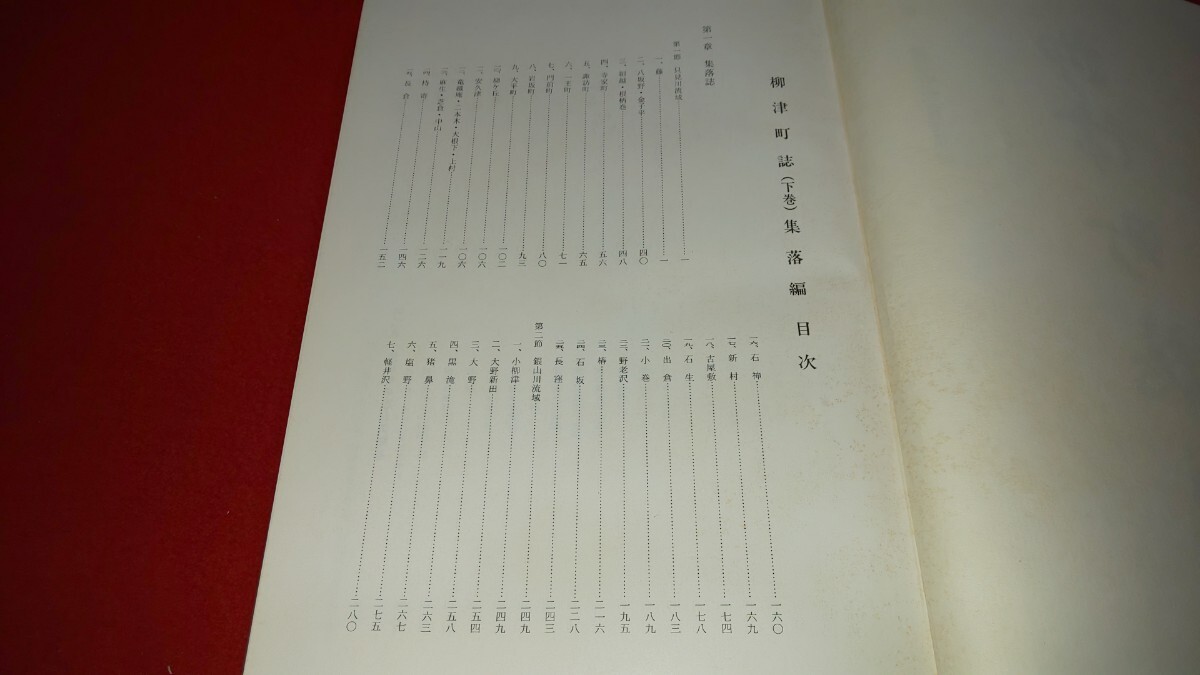 柳津町誌（下巻）集落編 目次
第一章 集落誌
第一節 只見川流域……一
一、藤……一
二、八坂野・………四〇
三、………四八
四、寺家町……五六
五、諏訪町……六五
六、一王町……七一
七、門前町……八〇
八、岩坂町……九三
九、大平町……一〇二
一〇、緑ケ丘……一〇六
一一、安久津……一〇六
一二、二本木・大根下・上村……一一九
一三、麻生・中山……一二六
一四、持寄……一四六
一五、長倉……一五二
一六、石神……一六〇
一七、新村……一六九
一八、古屋敷……一七四
一九、石生……一七八
二〇、出倉……一八三
二一、小巻……一八九
二二、野老沢……一九五
二三、椿……二一六
二四、石坂……二二八
二五、長窪……二四三
第二節 銀山川流域……二四九
一、小柳津……二四九
二、大野新田……二五四
三、大野……二五八
四、黒滝……二六三
五、猪鼻……二六七
六、塩野……二七五
七、軽井沢……二八〇